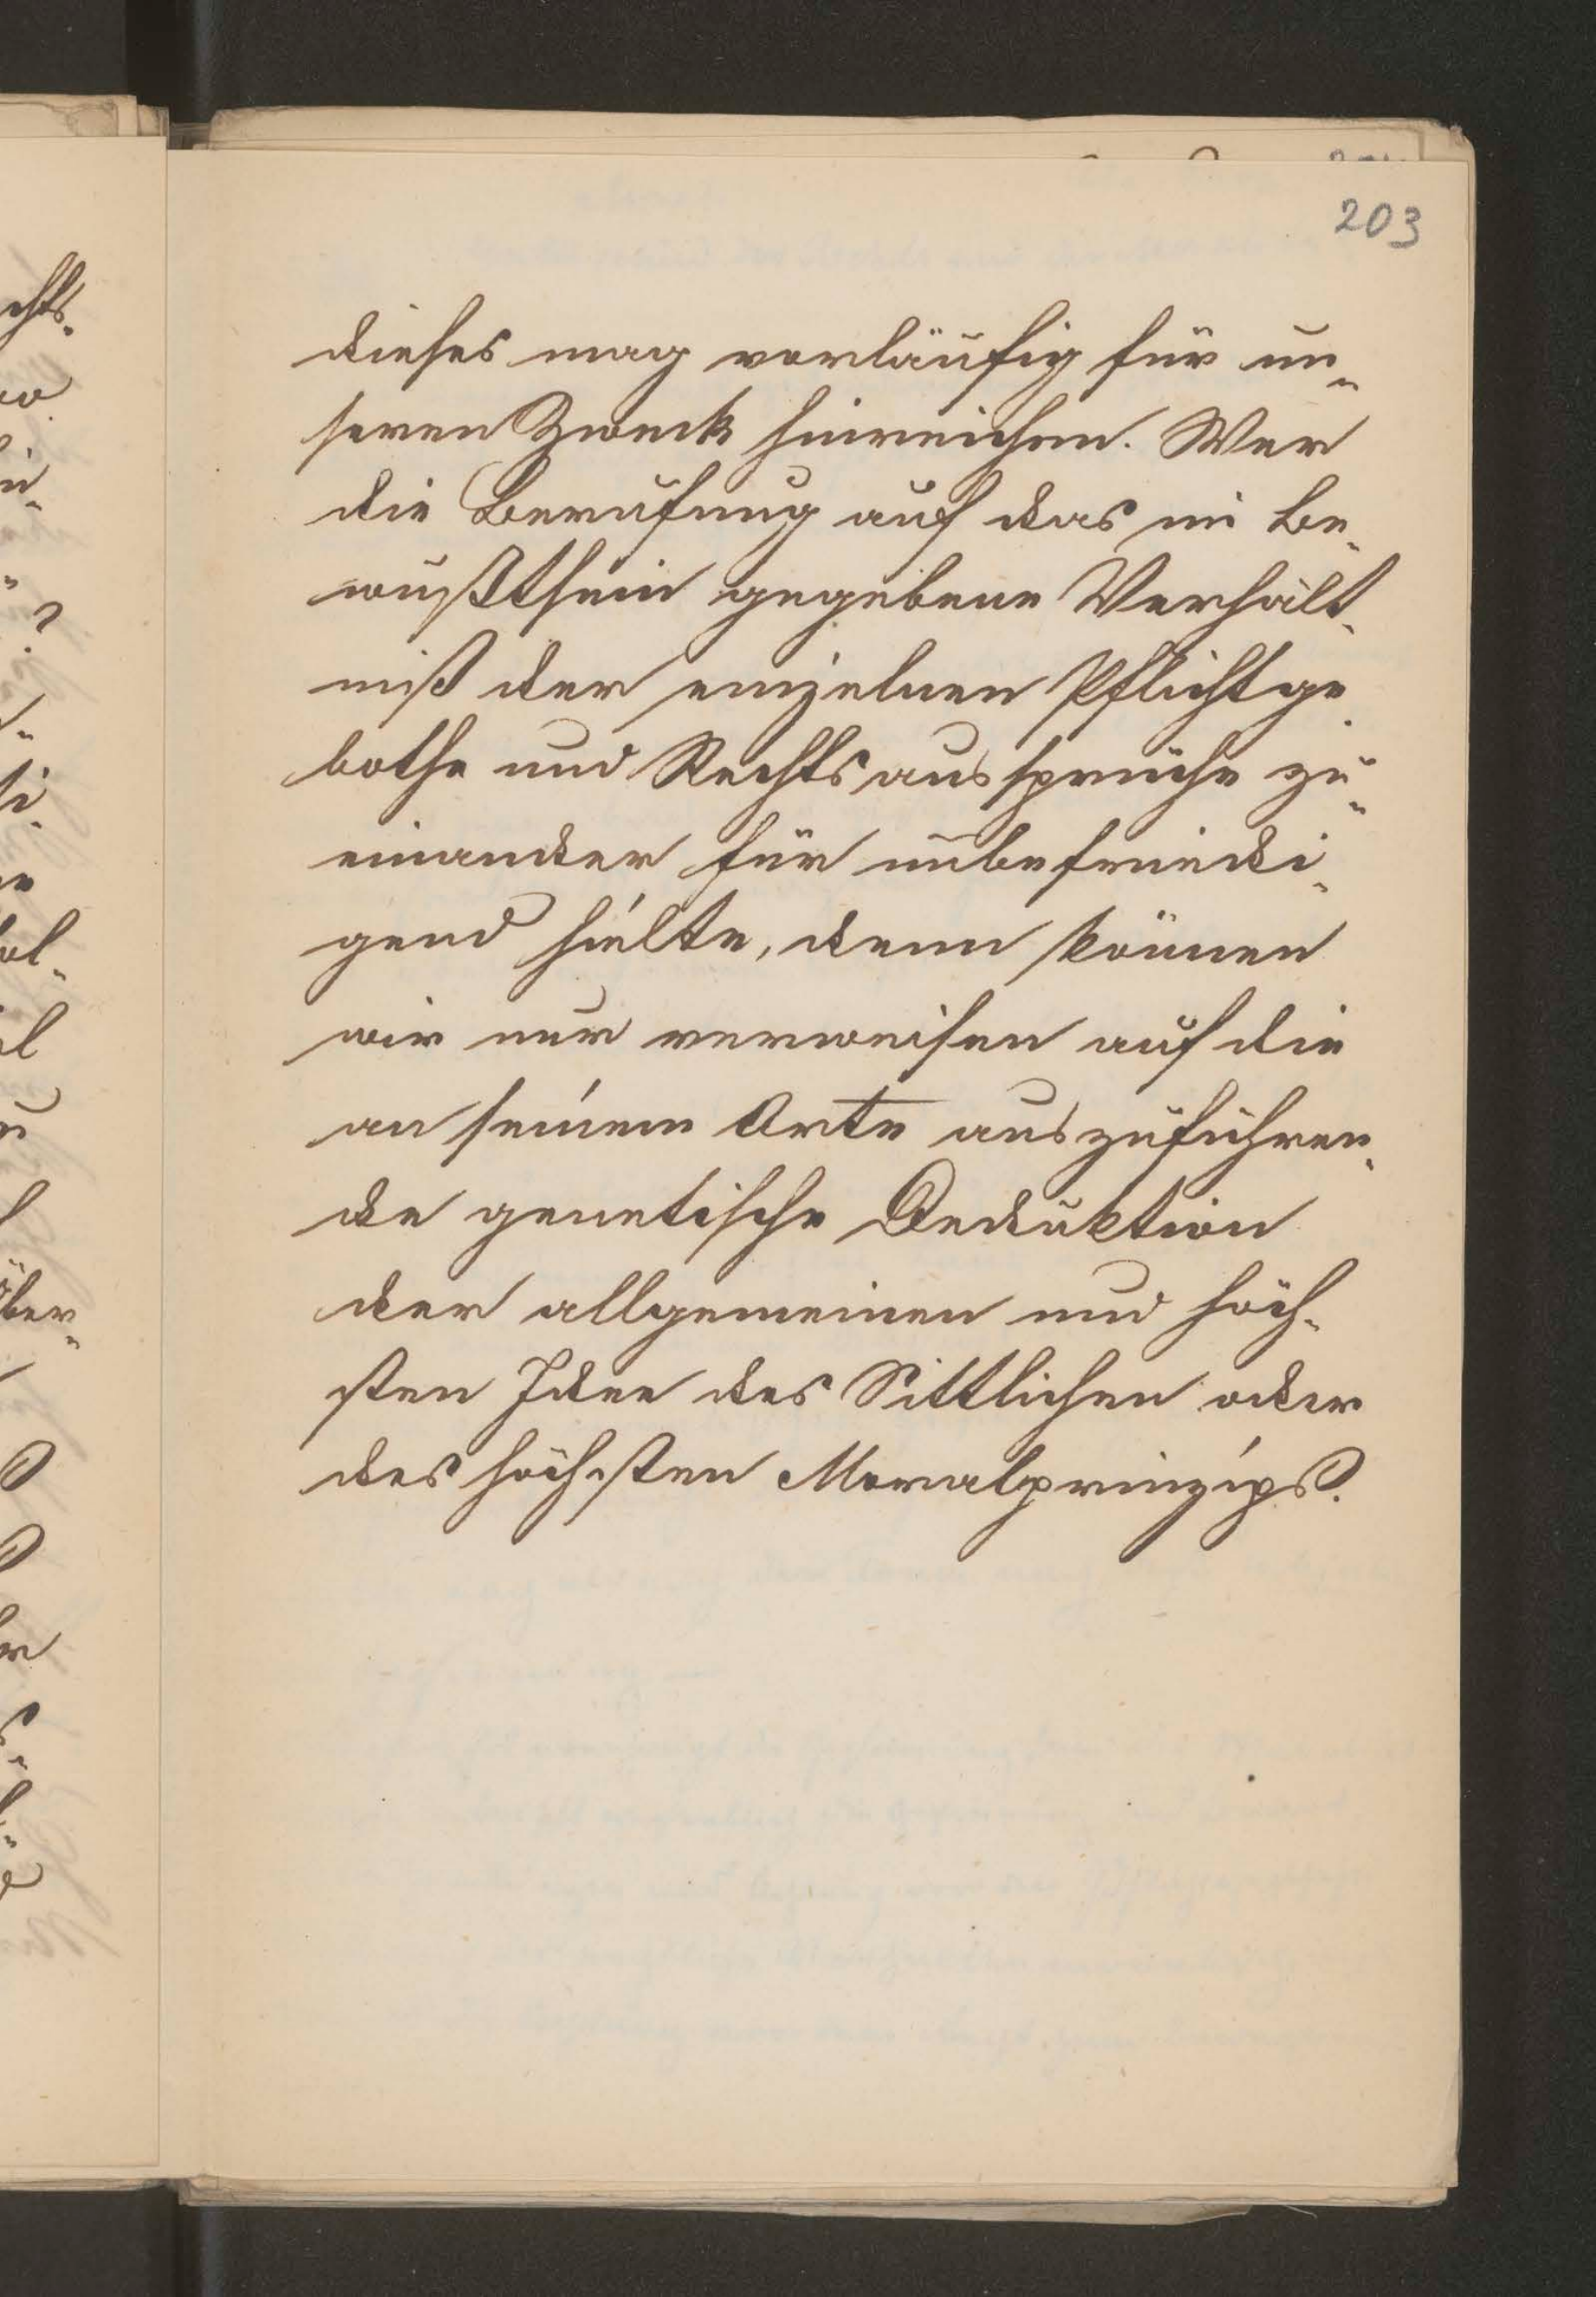 203
dieses mag vorläufig für un-
seren Zweck hinreichen. Wer
die Berufung auf das im Be-
wußtsein gegebene Verhält-
niß der einzelnen Pflichtge-
bothe und Rechtsaussprüche zu-
einander für unbefriedi-
gend hielte, denn können
wir nur verweisen auf die
an seinem Orte auszuführen-
de genetische Deduktion
der allgemeinen und höch-
sten Idee des Sittlichen oder
des höchsten Moralprinzips.